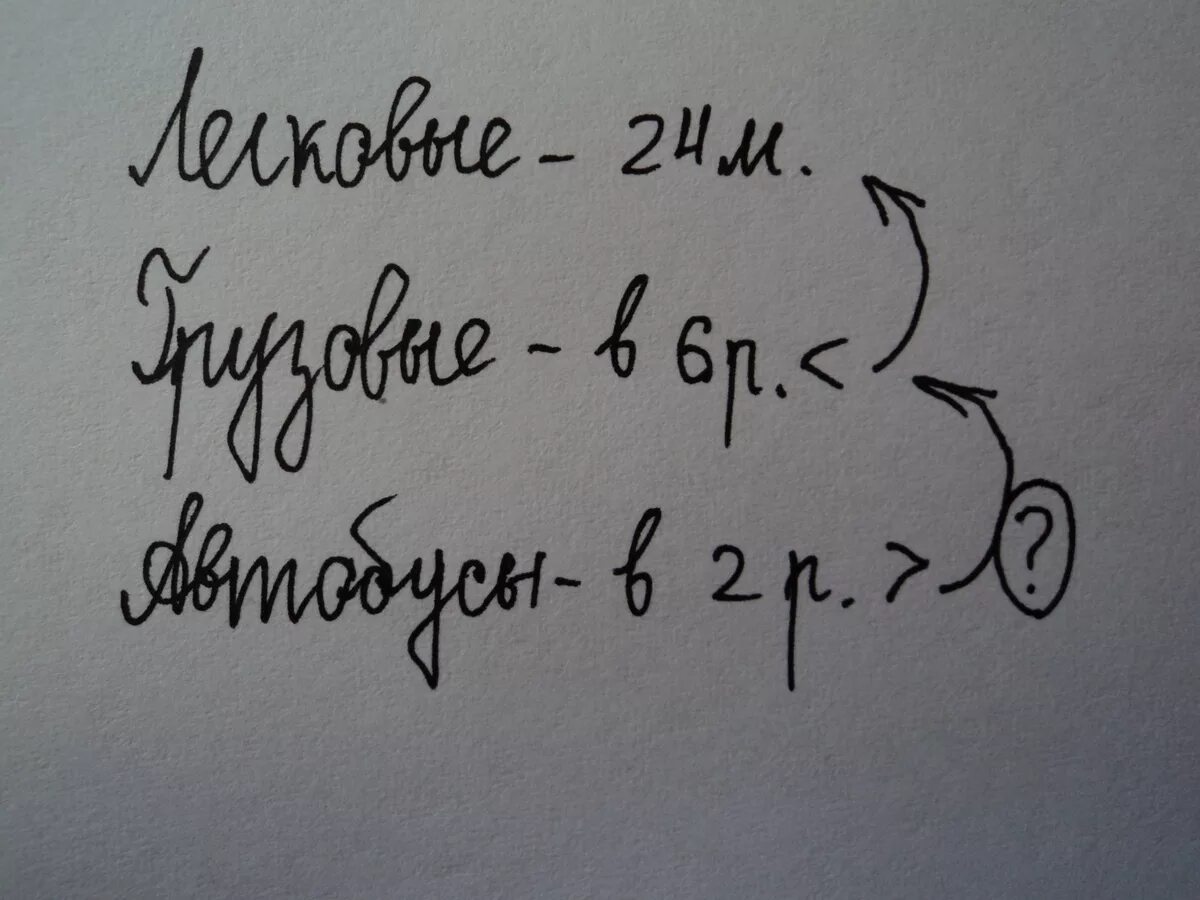 Легковые - 24 м.
Грузовые - в 6 р. <
Автобусы - в 2 р. > ?